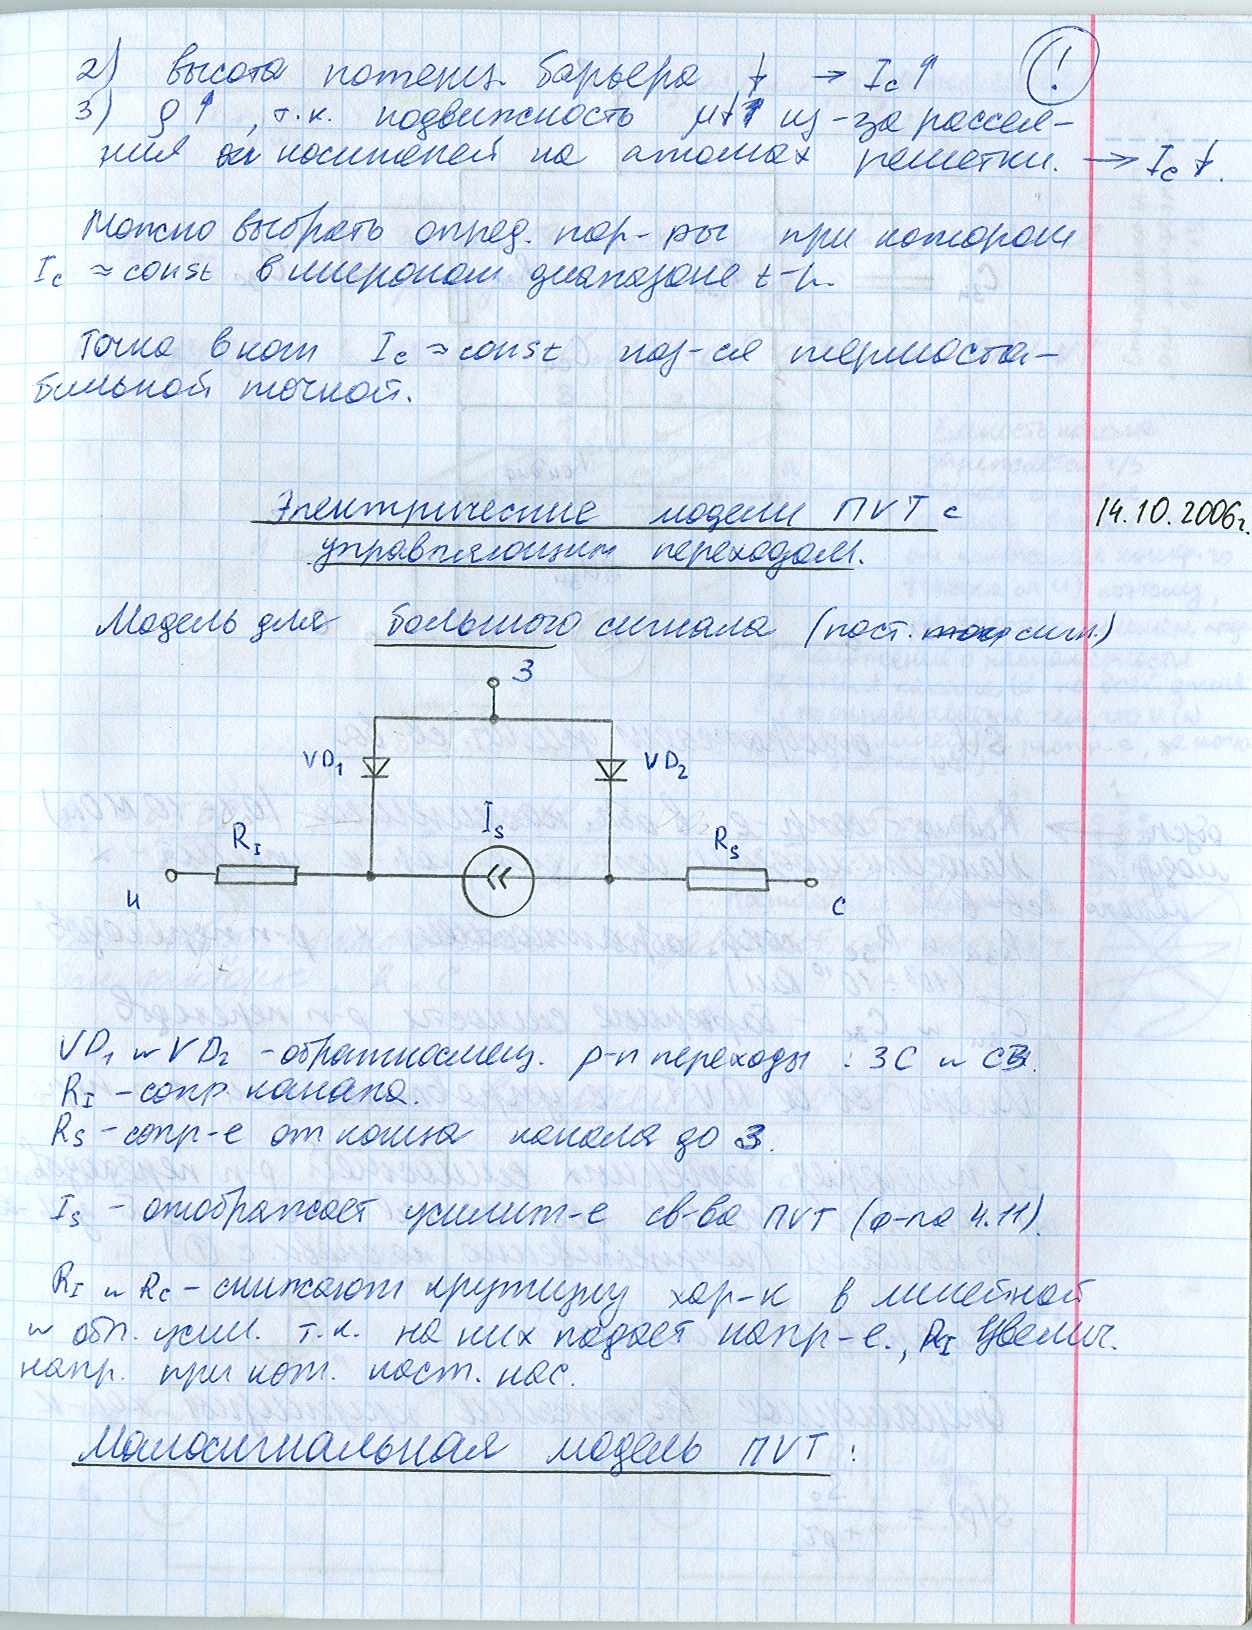 2) высота потенц. барьера ↓ → Ic↑ (!)
3) ρ↑, т.к. подвижность μ↓ из-за рассея-
ния носителей на атомах решетки. → Ic↓.
Можно выбрать опред. пар-ры при котором
Ic ≈ const в широком диапазоне t-р.
Точка в кот Ic ≈ const наз-ся термоста-
бильной точкой.
Электрические модели ПVТ с
14.10.2006г.
управляющим переходом.
Модель для большого сигнала (пост. сигн.)
З
VD1 VD2
Is
RI Rs
И С
VD1 и VD2 - обратносмещ. p-n переходы : ЗС и СЗ.
RI - сопр. канала.
Rs - сопр-е от конца канала до З.
Is - отображает усилит-е св-ва ПVТ (ф-ла 4.11).
RI и Rc - снижают крутизну хар-к в линейной
и обл. усил. т.к. на них падает напр-е., RI увелич.
напр. при кот. наст. нас.
Малосигнальная модель ПVТ :